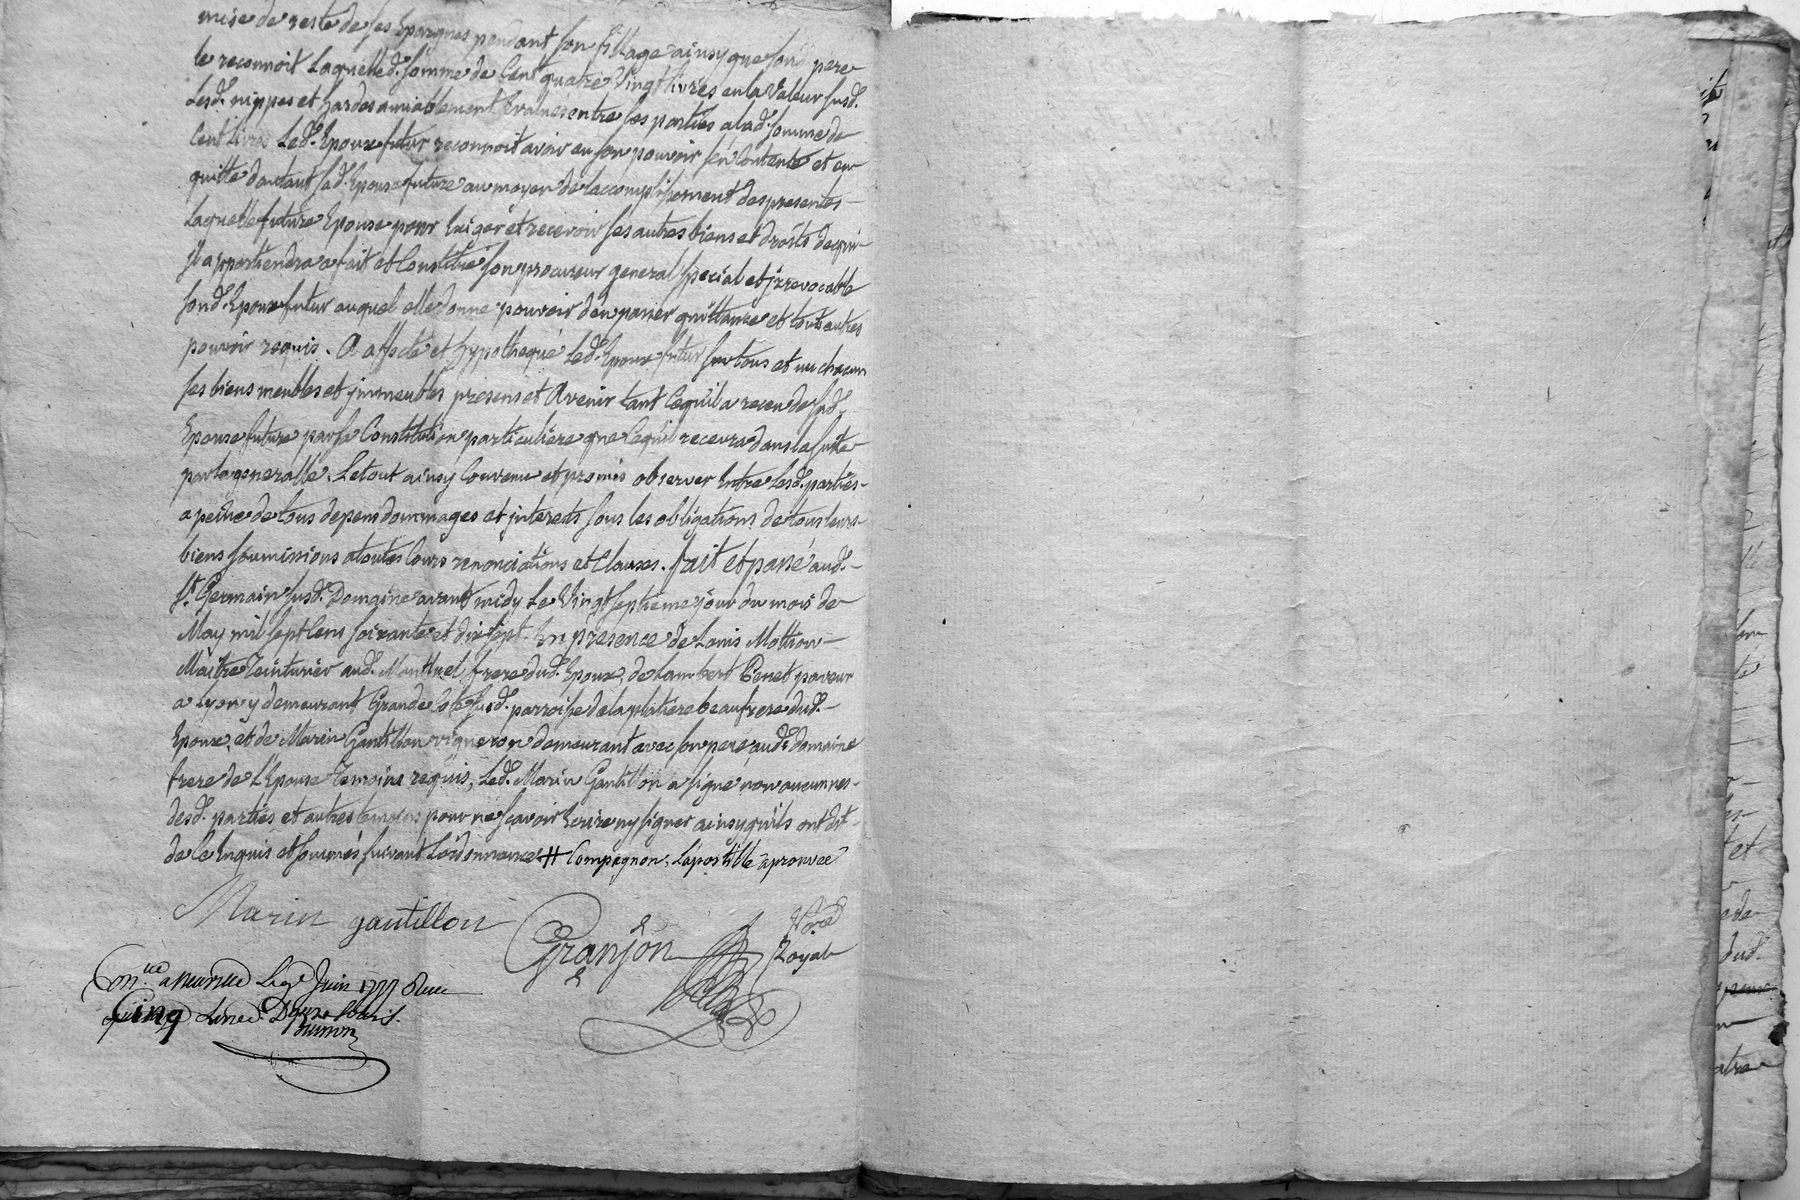 mise de reste de ses Epargnes pendant son fillage ainsy que sond. pere
le reconnoit Laquelle d. somme de Cent quatre Vingt livres en la Valeur susd.
Lesd. nippes et hardes amiablement Evalues entre les parties a lad. somme de
Cent livres Led. Epoux futur reconnoit avoir eu son pouvoir sen Contente et en
quitte dautant sad. Epouse future au moyen de laccomplissement des presentes
Laquelle future Epouse pour Exiger et recevoir ses autres biens et droits de qui
Il appartiendra a fait et Constitué son procureur general special et jrrevocable
sond. Epoux futur auquel elle donne pouvoir den passer quittance et tous autres
pouvoir requis. A affecté et hypothequé led. Epoux futur sur tous et un chacun
ses biens meubles et jmmeubles presens et Avenir tant Cequil a receu de sad.
Epouse future par sa Constitution particuliere que Cequil recevra dans la suite
par la generalle. Le tout ainsy Convenu et promis observer Entre Lesd. parties
a peine de tous depens dommages et jnterests sous les obligations de tous leurs
biens soumissions a toutes Cours renonciations et Clauses. fait et passé aud.
St. Germain susd. Domaine avant midy Le Vingt septieme jour du mois de
May mil sept Cens soixante et dix sept. En presence de Louis Mottion
Maitre teinturier aud. frere dud. Epoux, de Lambert Penet paveur
a Lyon y demeurant Grande Cote susd. parroisse de la platiere beaufrere dud.
Epoux, et de Marin Gantillon vigneron demeurant avec son pere aud. domaine
frere de L'Epouse temoins requis, Led. Marin Gantillon a signé non aucunnes
desd. parties et autres temoins pour ne scavoir Ecrire ny signer ainsy quils ont dit
de Ce Enquis et sommés suivant Lordonnance # Compagnon. Lapostille aprouvée
Marin gantillon
Granjon
Nore
Royal
Con.lée a neuville Le Juin 1777 Recu
Cinq